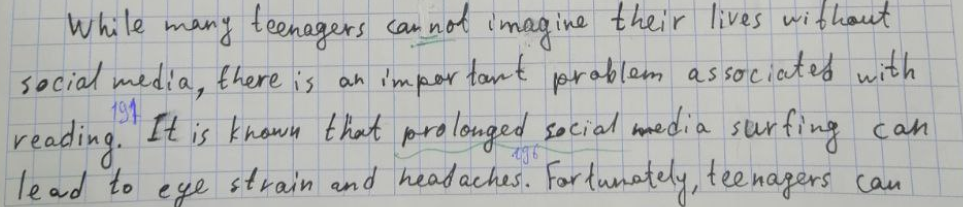 While many teenagers cannot imagine their lives without
social media, there is an important problem associated with
191
reading. It is known that prolonged social media surfing can
196
lead to eye strain and headaches. Fortunately, teenagers can